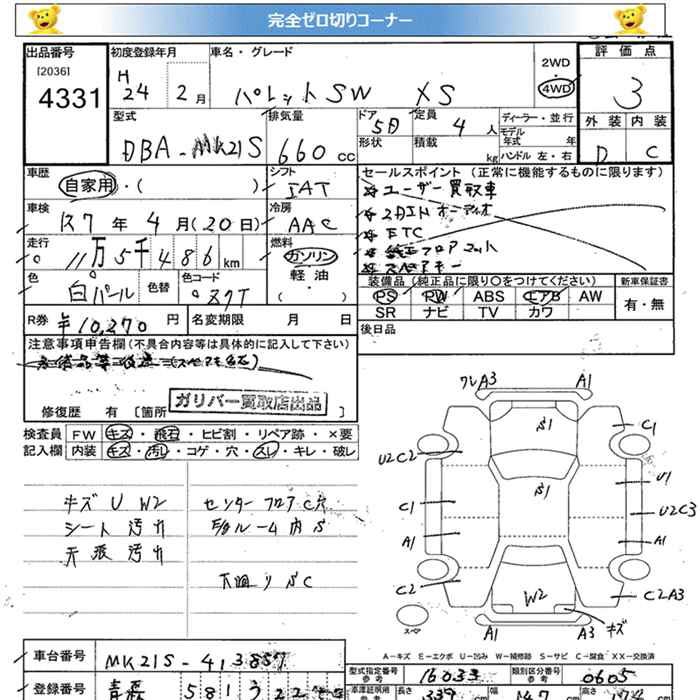 完全ゼロ切りコーナー
出品番号 初度登録年月 車名・グレード 評価点
[2036] 4331 H24 2月 パレットSW XS 2WD 4WD 3
外装 内装
D C
型式 排気量 ドア 定員 ディーラー・並行
DBA-MK21S 660cc 5D 4人 モデル年式 年
形状 積載 kg ハンドル 左・右
車歴 シフト セールスポイント(正常に機能するものに限ります)
自家用・( ) IAT ユーザー買取車
車検 冷房 2DINオーディオ
R7年4月(20日) AAC ETC
走行 燃料 純正フロアマット
11万5千486km ガソリン スペアキー
軽油・( )
色 色替 色コード 装備品(純正品に限り○をつけてください) 新車保証書
白パール ZKT PS PW ABS エアB AW 有・無
SR ナビ TV カワ
R券 ¥10,270円 名変期限 月 日 後日品
注意事項申告欄(不具合内容等は具体的に記入して下さい)
ガリバー買取店出品
修復歴 有 [箇所 ]
検査員 FW キズ・飛石・ヒビ割・リペア跡・×要
記入欄 内装 キズ・汚れ・コゲ・穴・スレ・キレ・破レ
キズ U W2 センターフロアC穴
シート汚れ
天張汚れ
下回りSC
ワレA3 A1
S1 C1
U2C2
S1 U1
C1 U2C3
A1 A1
C2 W2 C2A3
スペア A1 A3 キズ
A-キズ E-エクボ U-凹み W-補修跡 S-サビ C-腐食 XX-交換済
車台番号 MK21S-413857 型式指定番号 参考 16033 類別区分番号 参考 0605
登録番号 青森 581 長さ 339 cm 147 cm 高さ